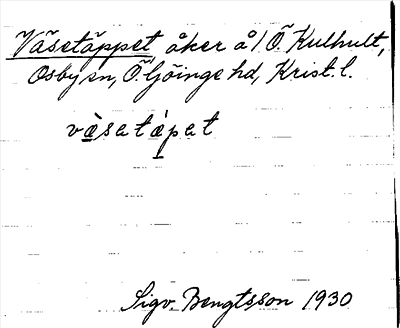 Väsetäppet åker å/Ö. Kulhult,
Osby sn, Ö. Göinge hd, Krist. l.
væ̀setápet
Sigv. Bengtsson 1930